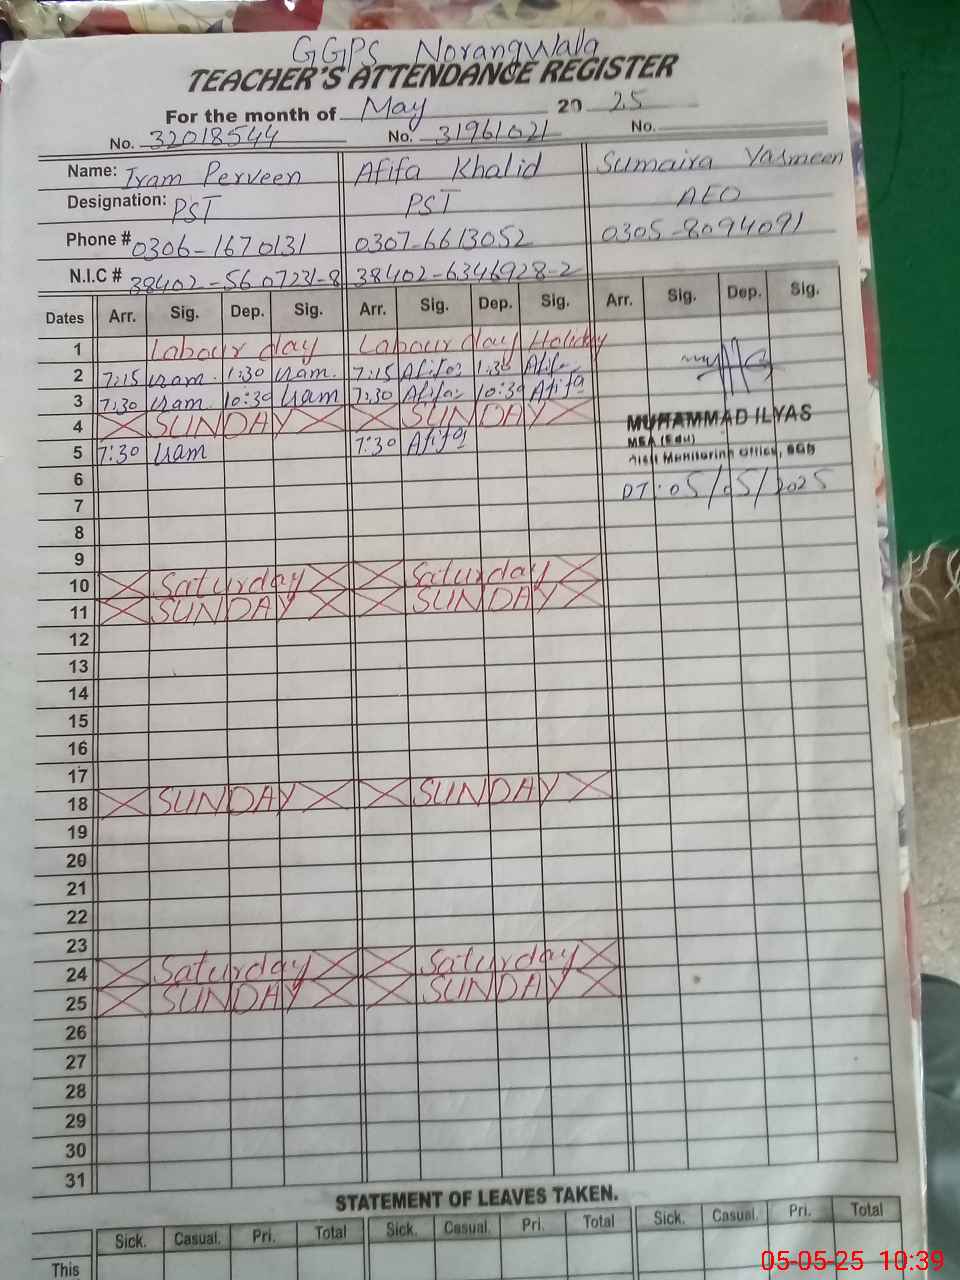 GGPS Norangwala
TEACHER'S ATTENDANCE REGISTER
For the month of May 2025
No. 32018544 No. 31961021 No.
Name: Iram Perveen Afifa Khalid Sumaira Yasmeen
Designation: PST PST AEO
Phone # 0306-1670131 0307-6613052 0305-8094091
N.I.C # 38402-5607231-8 38402-6346928-2
Dates Arr. Sig. Dep. Sig. Arr. Sig. Dep. Sig. Arr. Sig. Dep. Sig.
1 Labour day Labour day Holiday
2 7:15 Iram 1:30 Iram 7:15 Afifa 1:30 Afifa
3 7:30 Iram 10:30 Iram 7:30 Afifa 10:30 Afifa
4 SUNDAY SUNDAY MUHAMMAD ILYAS
MEA (Edu)
5 7:30 Iram 7:30 Afifa Monitoring Office, SGD
6 DT: 05/05/2025
7
8
9
10 Saturday Saturday
11 SUNDAY SUNDAY
12
13
14
15
16
17
18 SUNDAY SUNDAY
19
20
21
22
23
24 Saturday Saturday
25 SUNDAY SUNDAY
26
27
28
29
30
31
STATEMENT OF LEAVES TAKEN.
Sick. Casual. Pri. Total Sick. Casual. Pri. Total Sick. Casual. Pri. Total
This
05-05-25 10:39